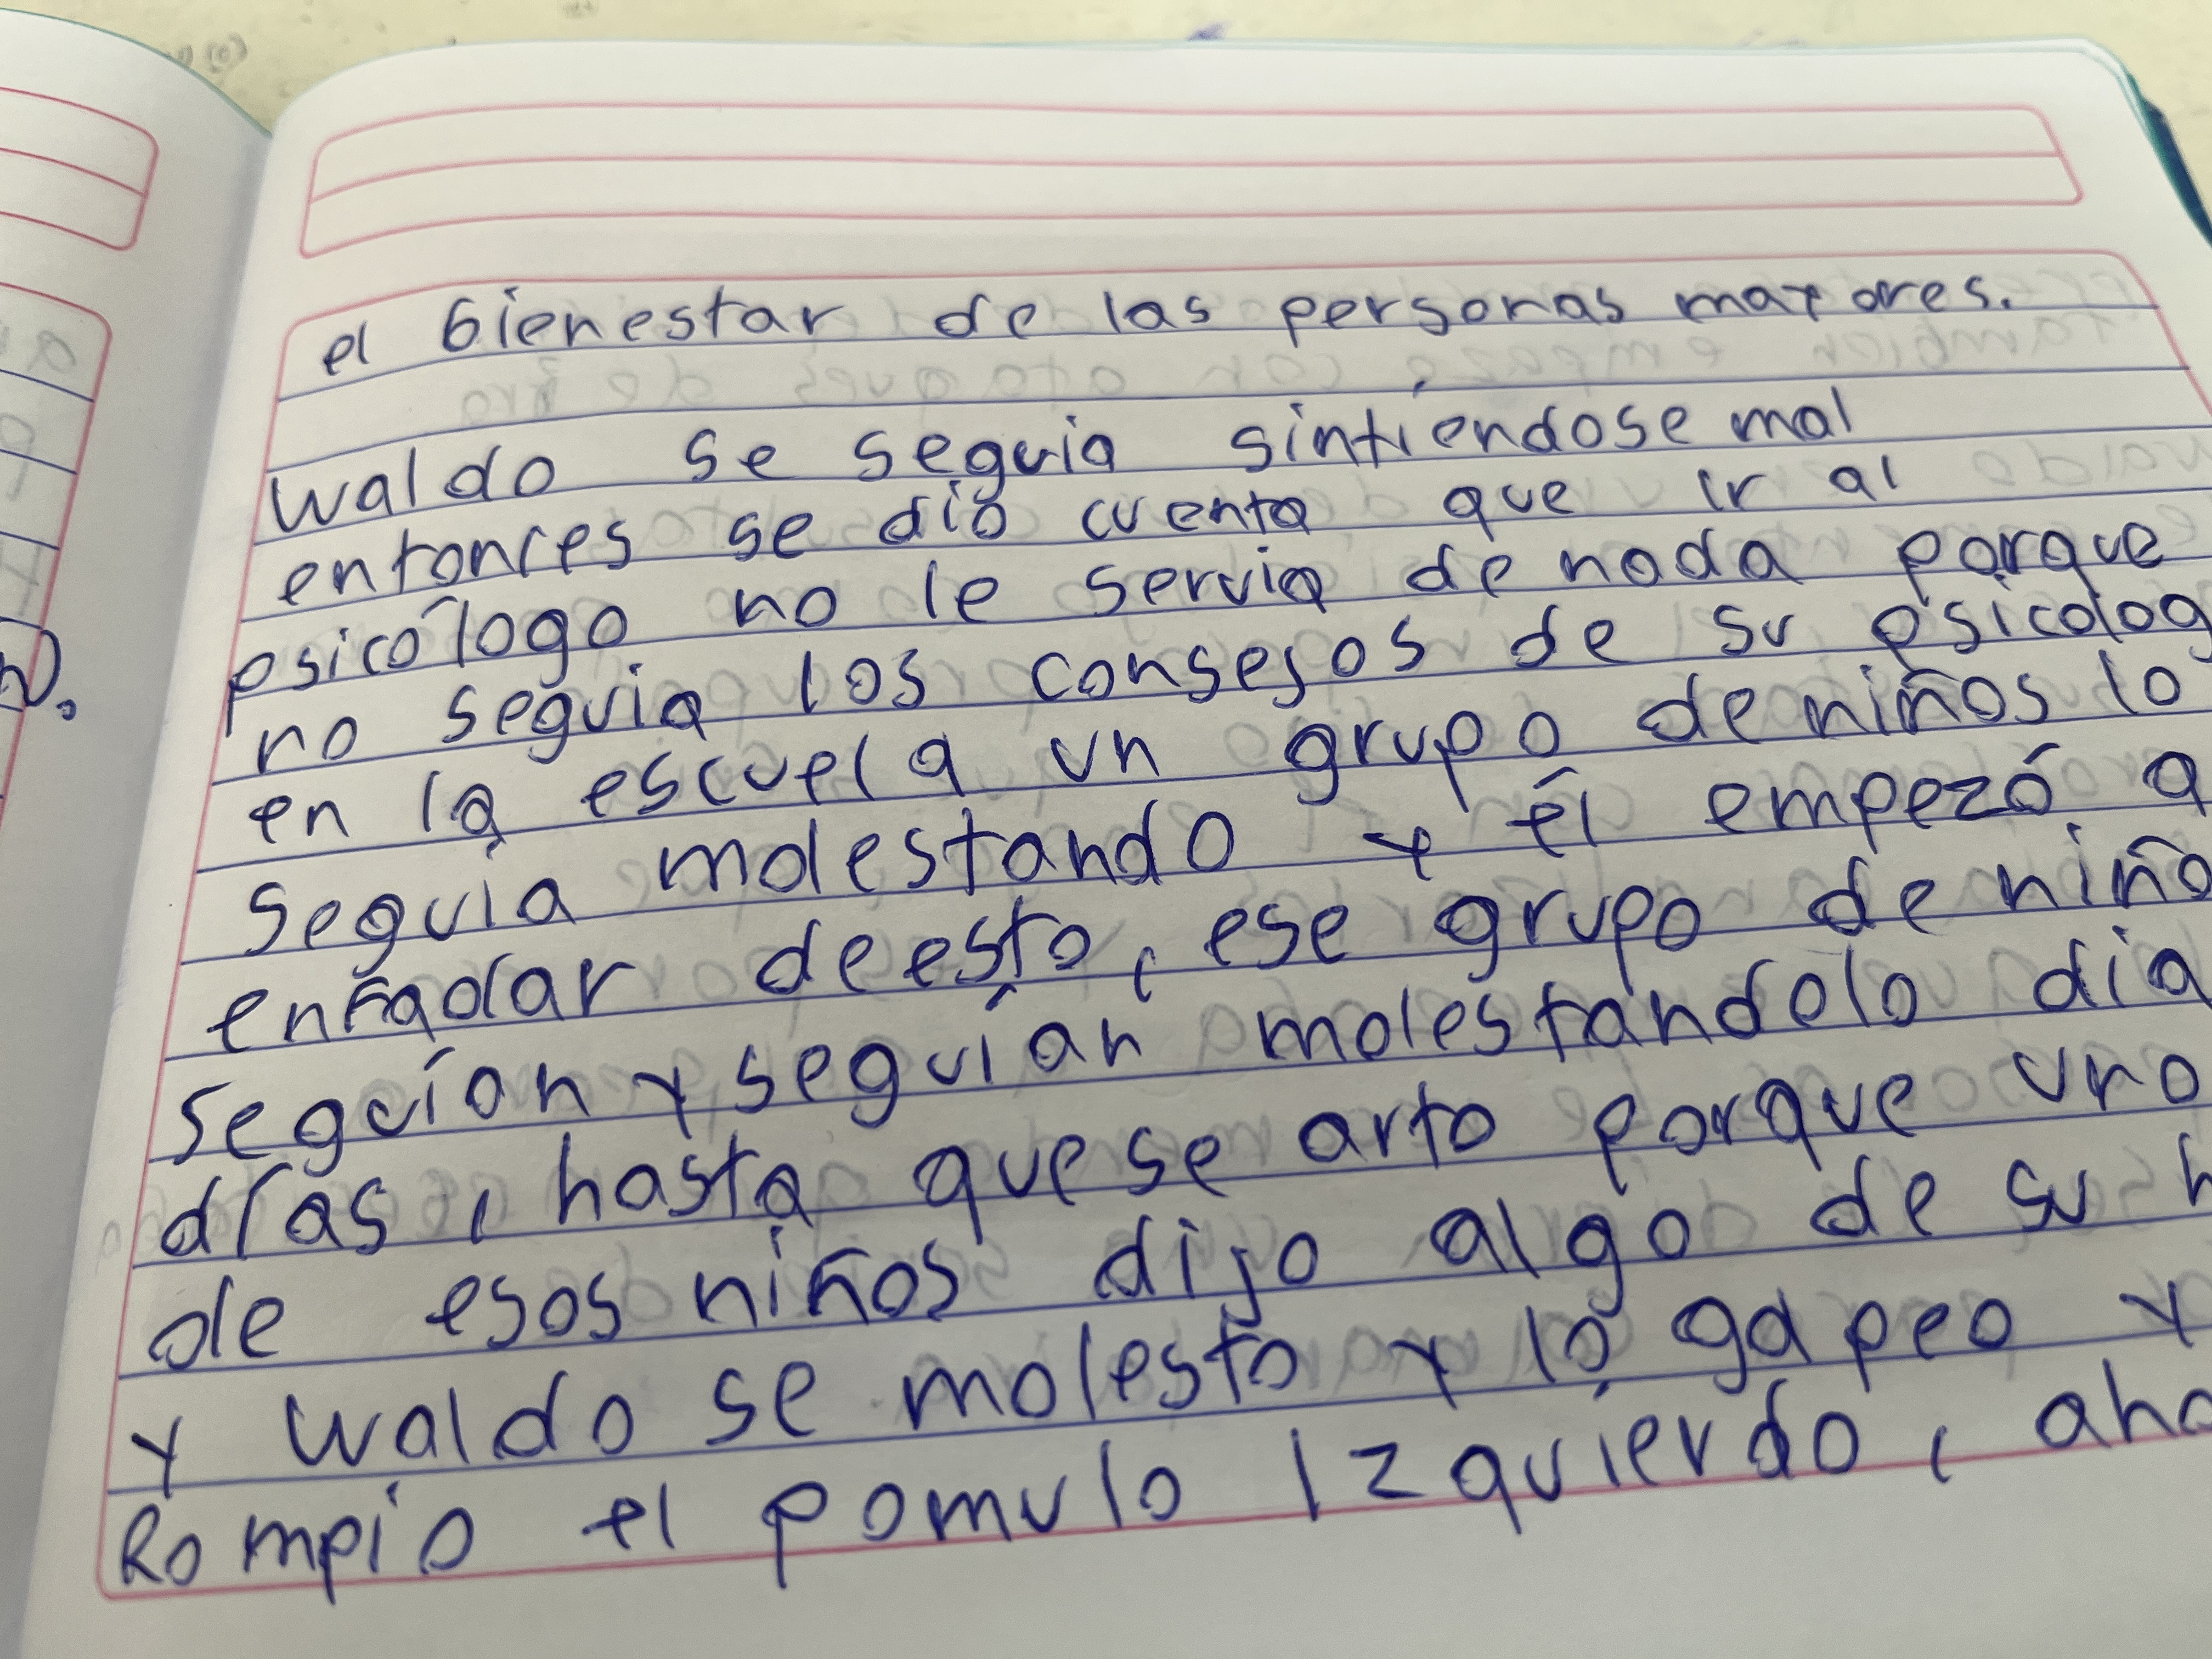 el bienestar de las personas mayores.
waldo se seguia sintiendose mal
entonces se dió cuenta que ir al
psicólogo no le servia de nada porque
no seguia los consejos de su psicolog
en la escuela un grupo de niños lo
seguía molestando y él empezó a
enfadar de esto, ese grupo de niño
seguían y seguían molestandolo dia
días, hasta que se arto porque uno
de esos niños dijo algo de su h
y waldo se molesto y lo gapeo y
Rompio el pomulo Izquierdo, aho